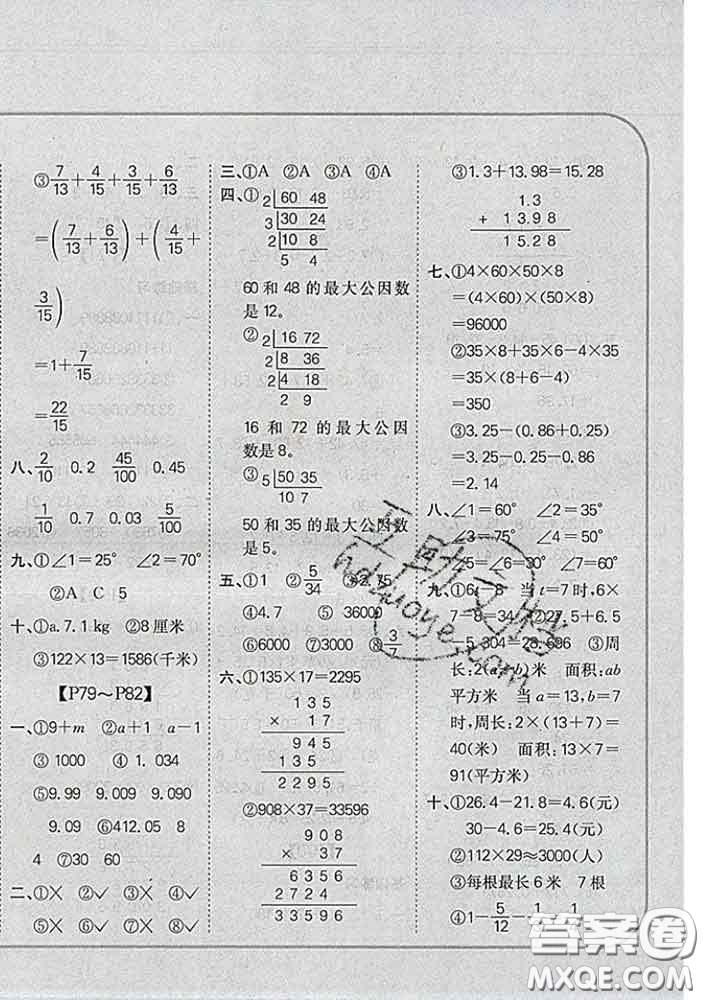 ③7/13+4/15+3/15+6/13
=(7/13+6/13)+(4/15+
3/15)
=1+7/15
=22/15
八、2/10 0.2 45/100 0.45
1/10 0.7 0.03 5/100
九、①∠1=25° ∠2=70°
②A C 5
十、①a.7.1 kg ②8厘米
③122×13=1586(千米)
【P79~P82】
一、①9+m ②a+1 a-1
③1000 ④1.034
⑤9.99 9.009 9.090
9.09 ⑥412.05 8
4 ⑦30 60
二、①× ②✓ ③× ④✓
⑤× ⑥✓ ⑦× ⑧✓
三、①A ②A ③A ④A
四、①2 60 48
3 30 24
2 10 8
5 4
60和48的最大公因数
是12。
②2 16 72
2 8 36
2 4 18
2 9
16和72的最大公因
数是8。
③5 50 35
10 7
50和35的最大公因数
是5。
五、①1 ②5/34 ③2.75
④4.7
⑥6000 ⑦3000 ⑧3/7
六、①135×17=2295
135
× 17
945
135
2295
②908×37=33596
908
× 37
6356
2724
33596
③1.3+13.98=15.28
1.3
+ 13.98
15.28
七、①4×60×50×8
=(4×60)×(50×8)
=96000
②35×8+35×6-4×35
=35×(8+6-4)
=350
③3.25-(0.86+0.25)
=3.25-0.25-0.86
=2.14
八、∠1=60° ∠2=35°
∠3=75° ∠4=50°
∠5= ∠6=30° ∠7=60°
九、①6t-8 当t=7时,6×
7-8=34 ②27.5+6.5
-5.304=28.696 ③周
长:2(a+b)米 面积:ab
平方米 当a=13,b=7
时,周长:2×(13+7)=
40(米) 面积:13×7=
91(平方米)
十、①26.4-21.8=4.6(元)
30-4.6=25.4(元)
②112×29≈3000(人)
③每根最长6米 7根
④1-5/12-1/-1/
互助文
hdzuoye.com
答案圈
MXQE.COM